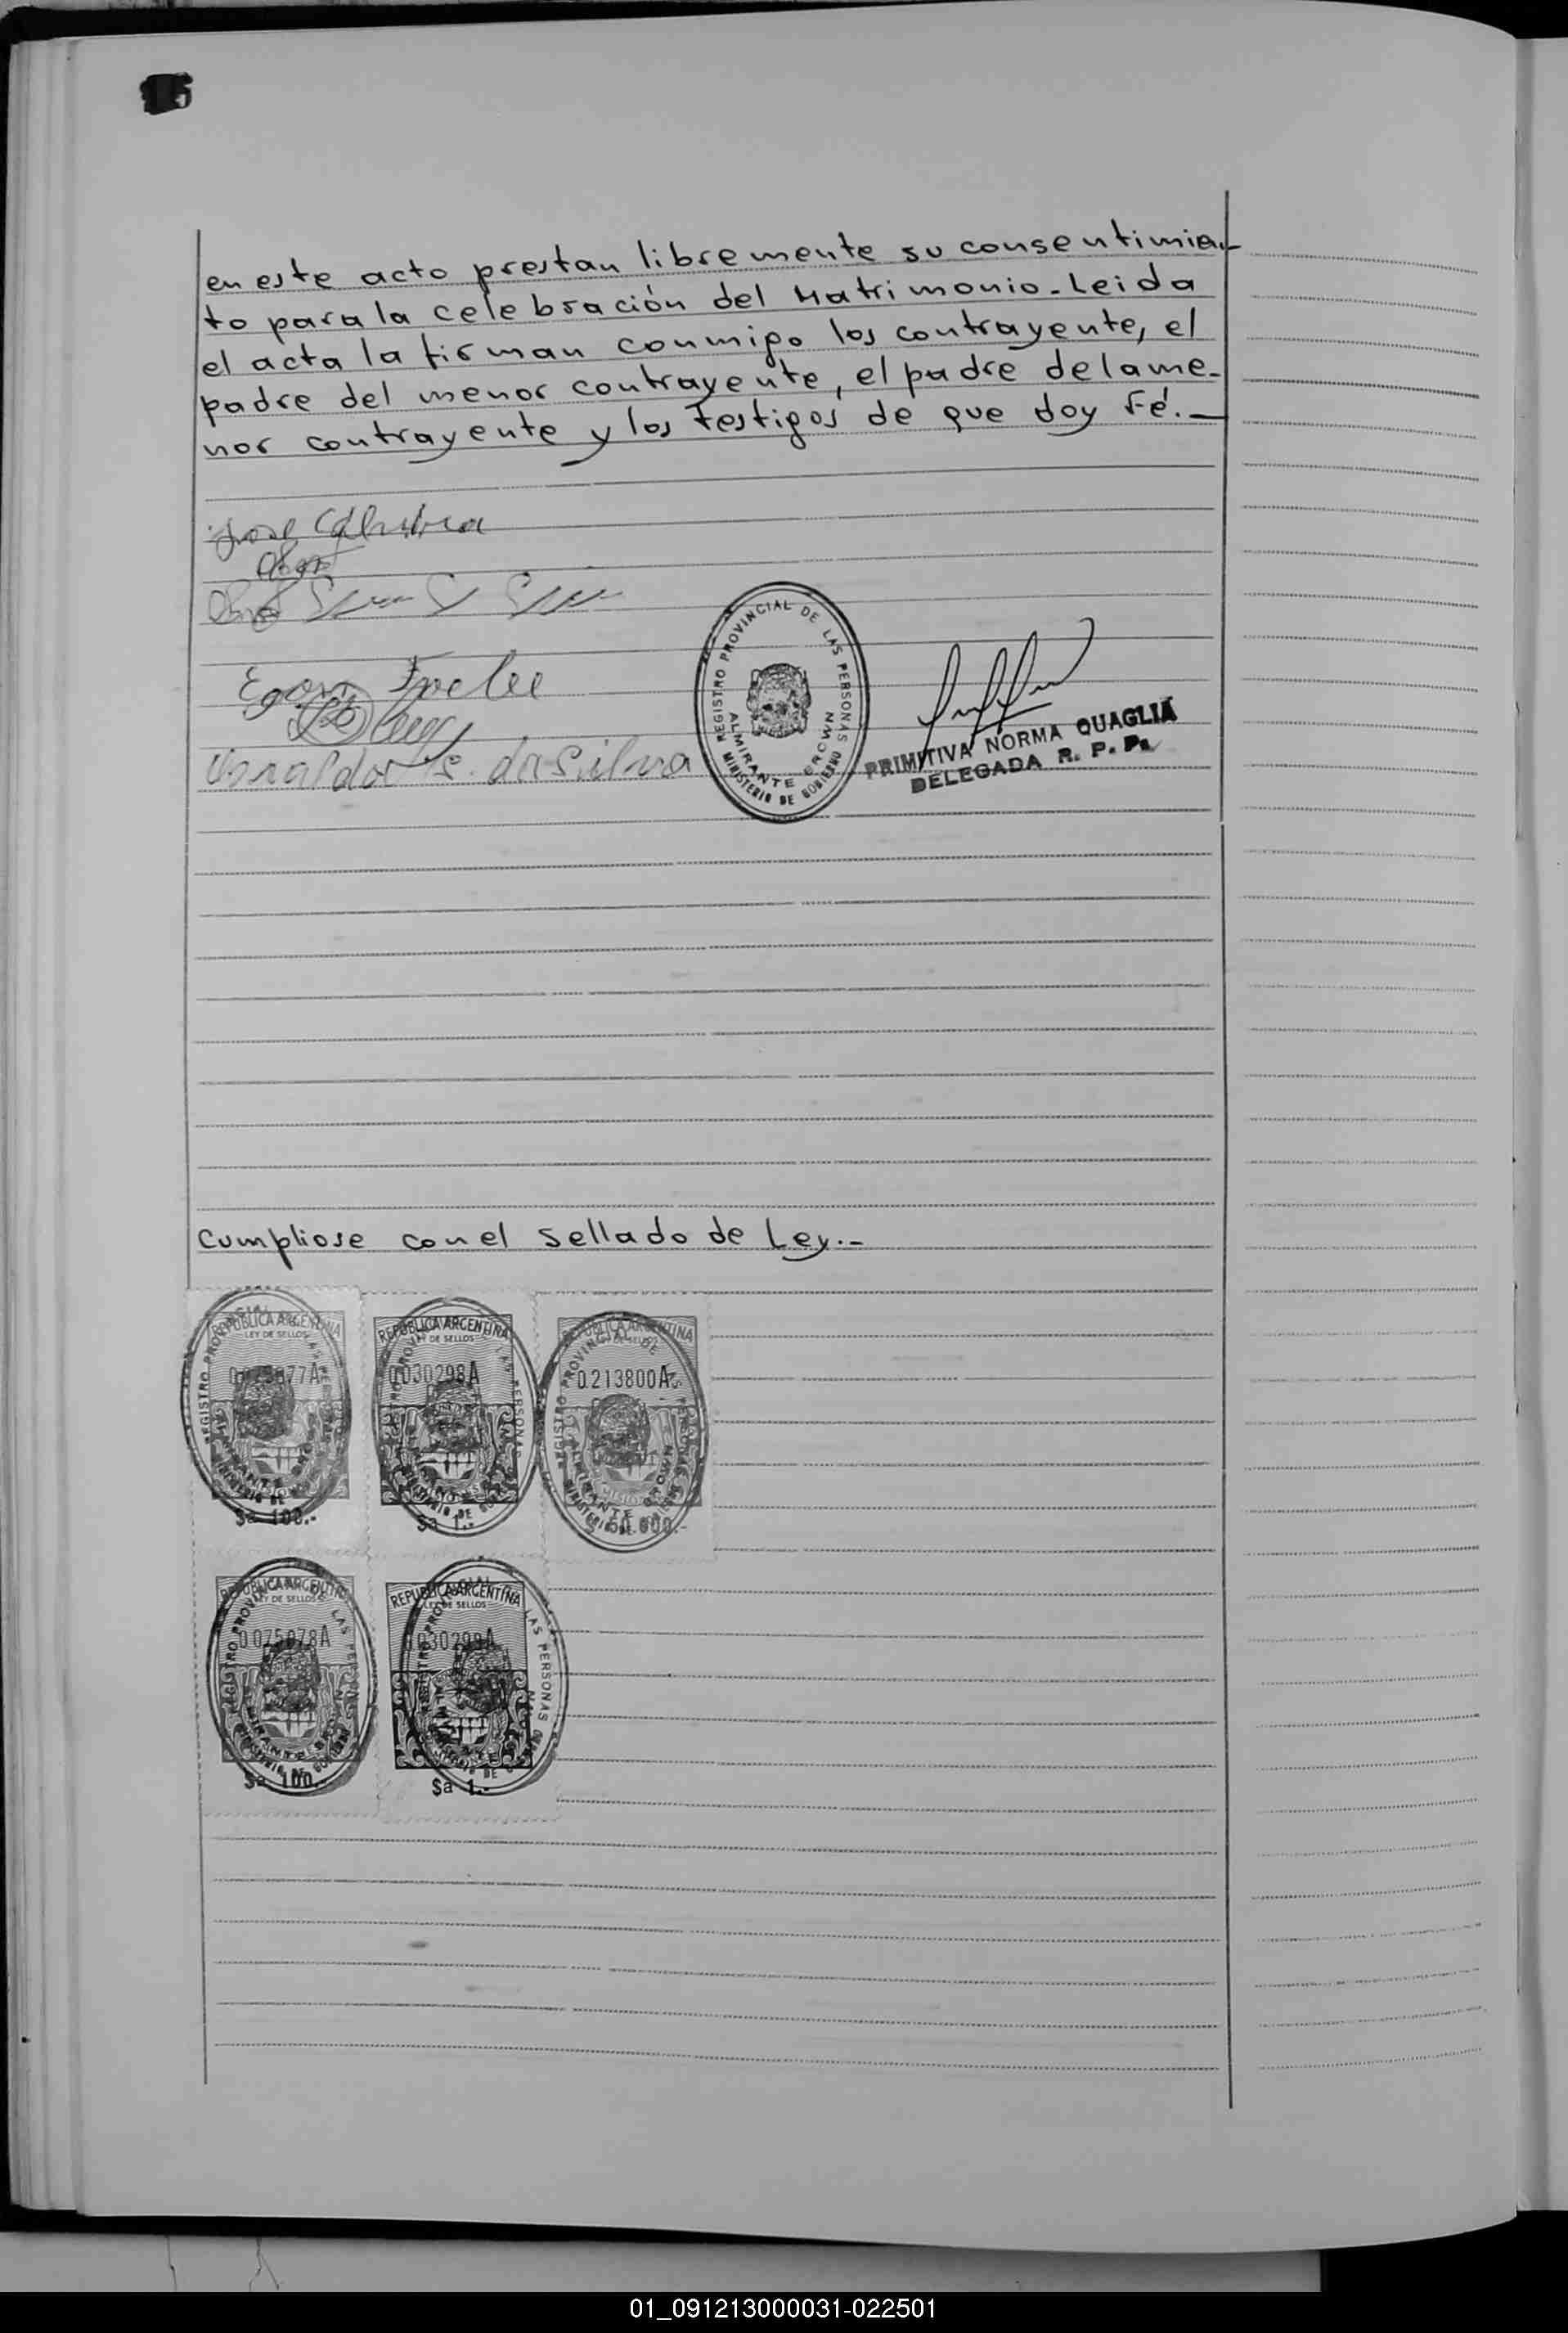 en este acto prestan libremente su consentimien-
to para la celebración del Matrimonio.- Leida
el acta la firman conmigo los contrayente, el
padre del menor contrayente, el padre de la me-
nor contrayente y los testigos de que doy Fé.-
Jose
da Silva
REGISTRO PROVINCIAL DE LAS PERSONAS
ALMIRANTE BROWN
MINISTERIO DE GOBIERNO
PRIMITIVA NORMA QUAGLIA
DELEGADA R. P. P.
Cumpliose con el sellado de Ley.-
REPUBLICA ARGENTINA REPUBLICA ARGENTINA REPUBLICA ARGENTINA
LEY DE SELLOS LEY DE SELLOS LEY DE SELLOS
0030298A 0213800A
$a 100.- $a 1.- 50.000.-
REPUBLICA ARGENTINA REPUBLICA ARGENTINA
LEY DE SELLOS LEY DE SELLOS
0075078A 0030299A
$a 100.- $a 1.-
01_091213000031-022501